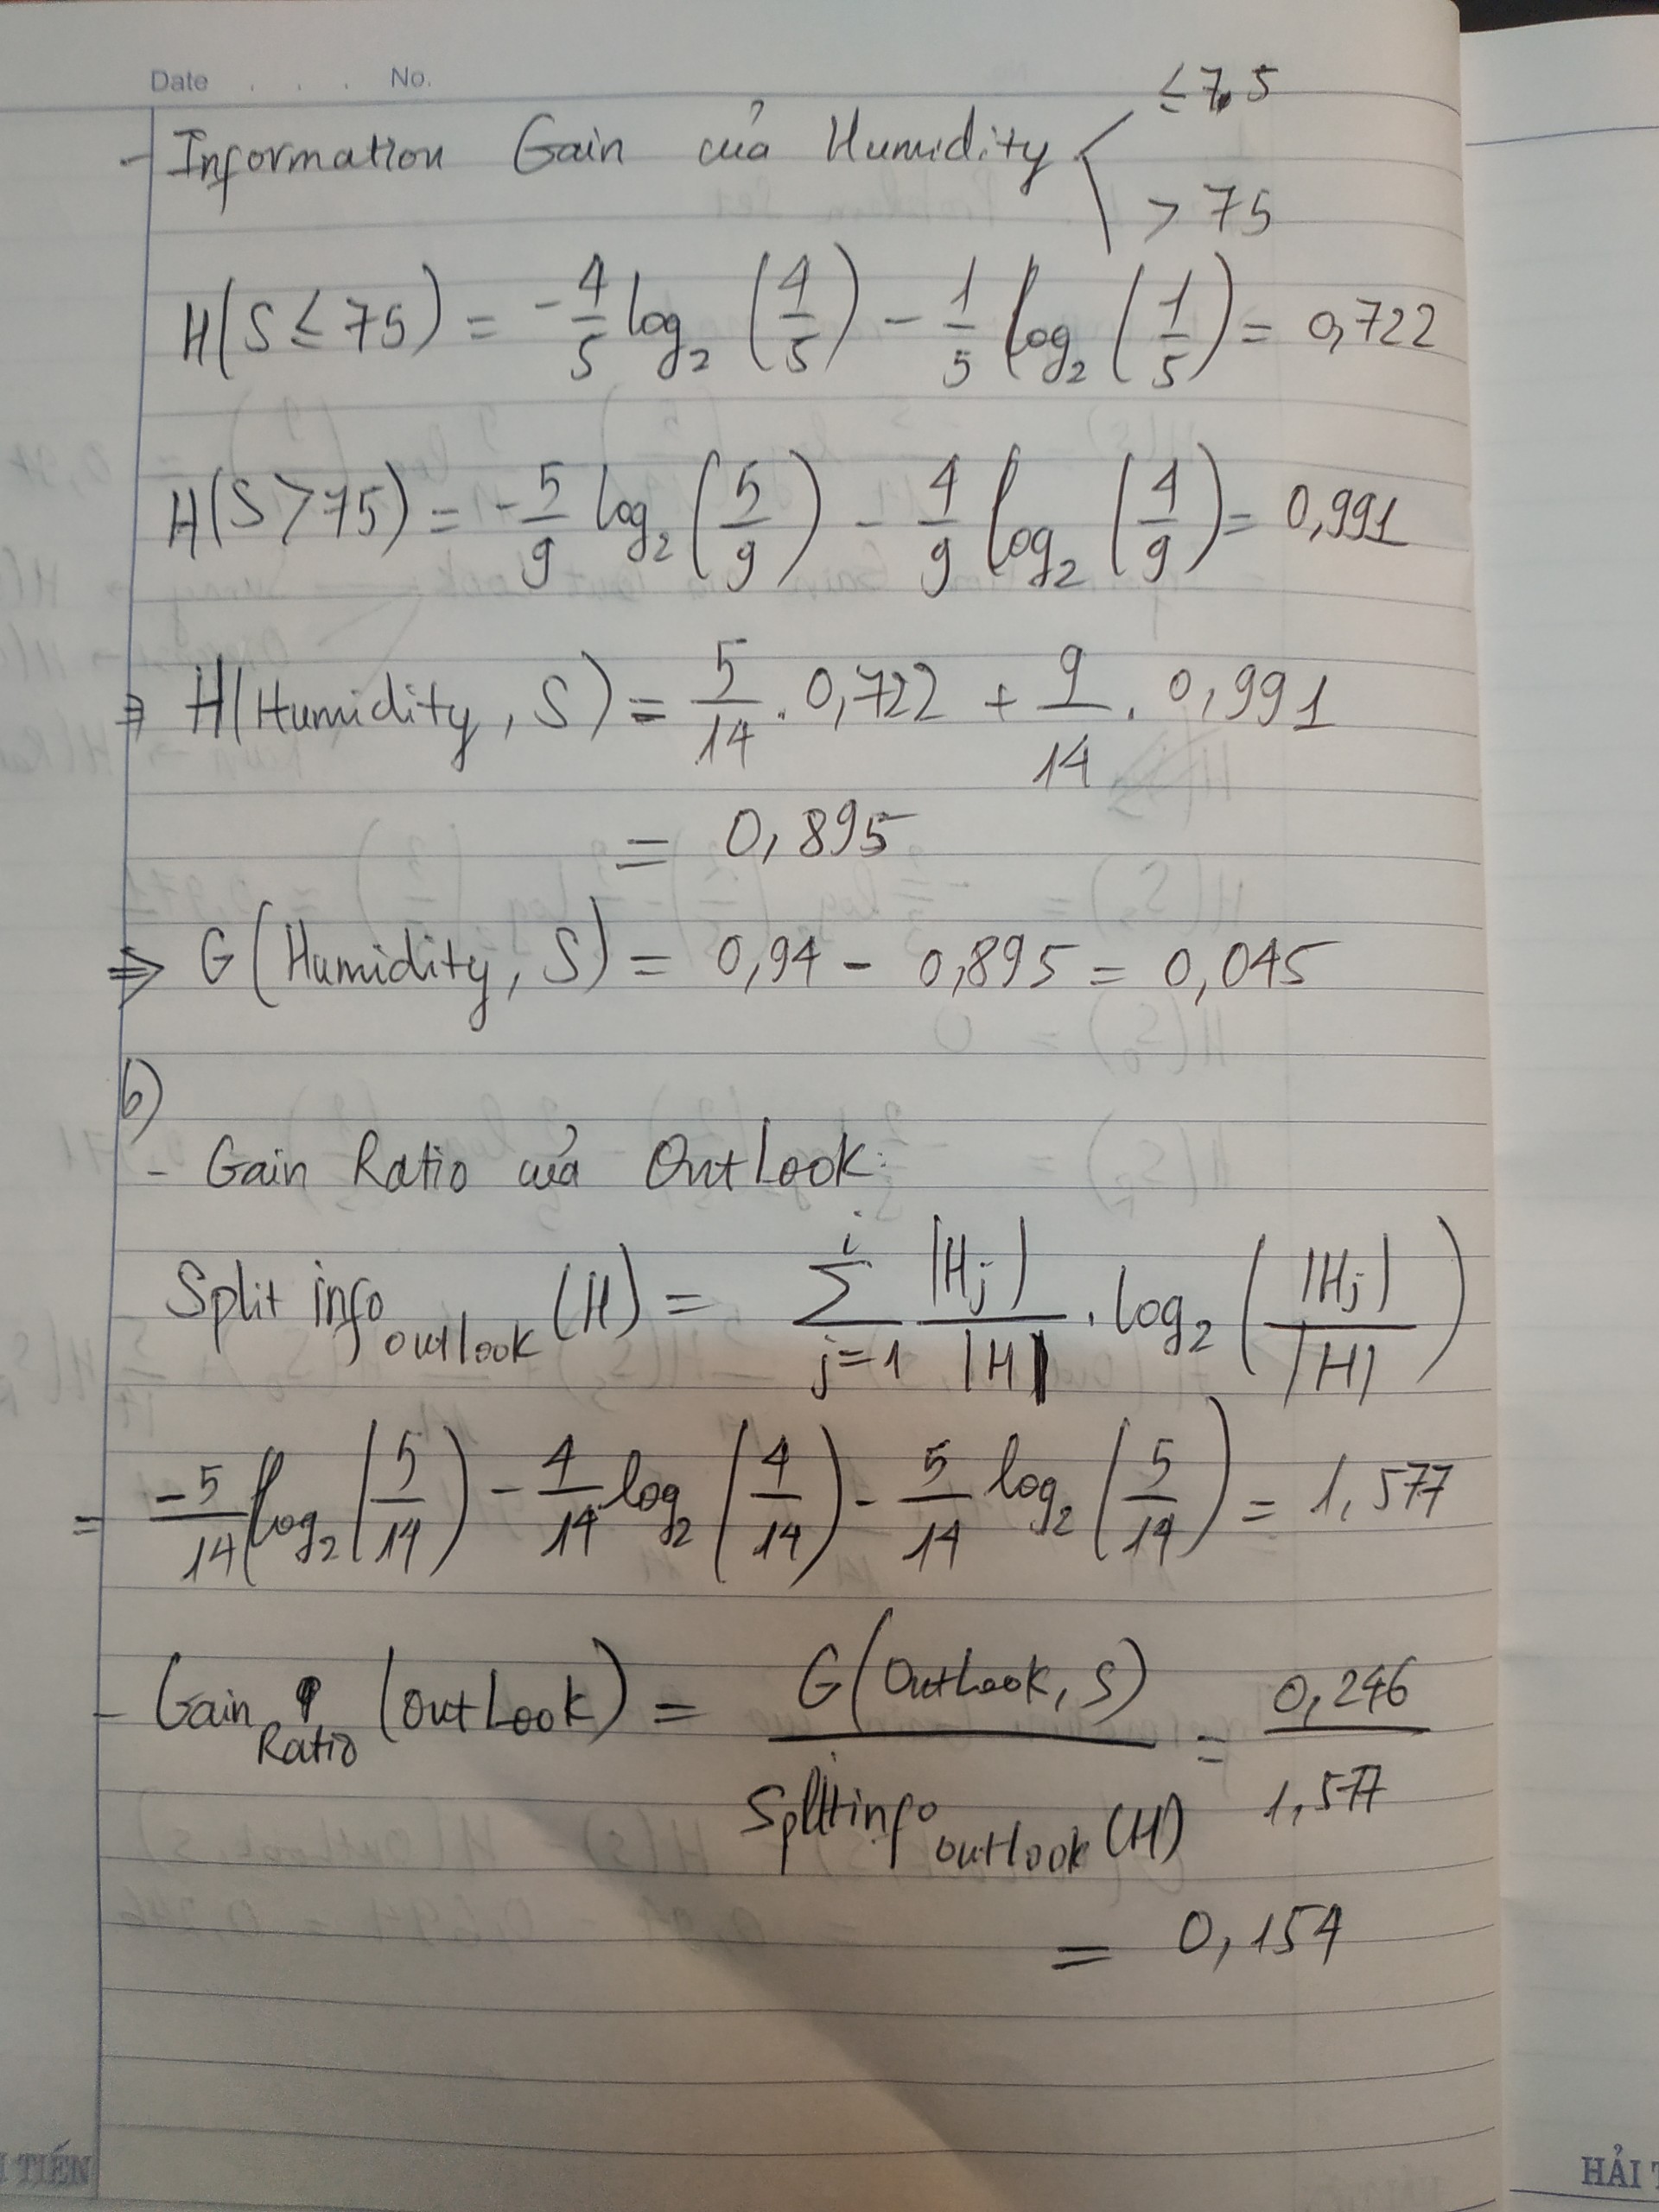 Date . . . No.
≤ 7,5
- Information Gain của Humidity <
> 75
H(S ≤ 75) = -4/5 log₂ (4/5) - 1/5 log₂ (1/5) = 0,722
H(S > 75) = -5/9 log₂ (5/9) - 4/9 log₂ (4/9) = 0,991
⇒ H(Humidity, S) = 5/14 . 0,722 + 9/14 . 0,991
= 0,895
⇒ G(Humidity, S) = 0,94 - 0,895 = 0,045
b)
- Gain Ratio của OutLook:
Split info outlook (H) = Σ i j=1 |Hj|/|H| . log₂ (|Hj|/|H|)
= -5/14 log₂ (5/14) - 4/14 log₂ (4/14) - 5/14 log₂ (5/14) = 1,577
- Gain Ratio (outLook) = G(OutLook, S)/Splitinfo outlook (H) = 0,246/1,577
= 0,154
TIẾN
HẢI T